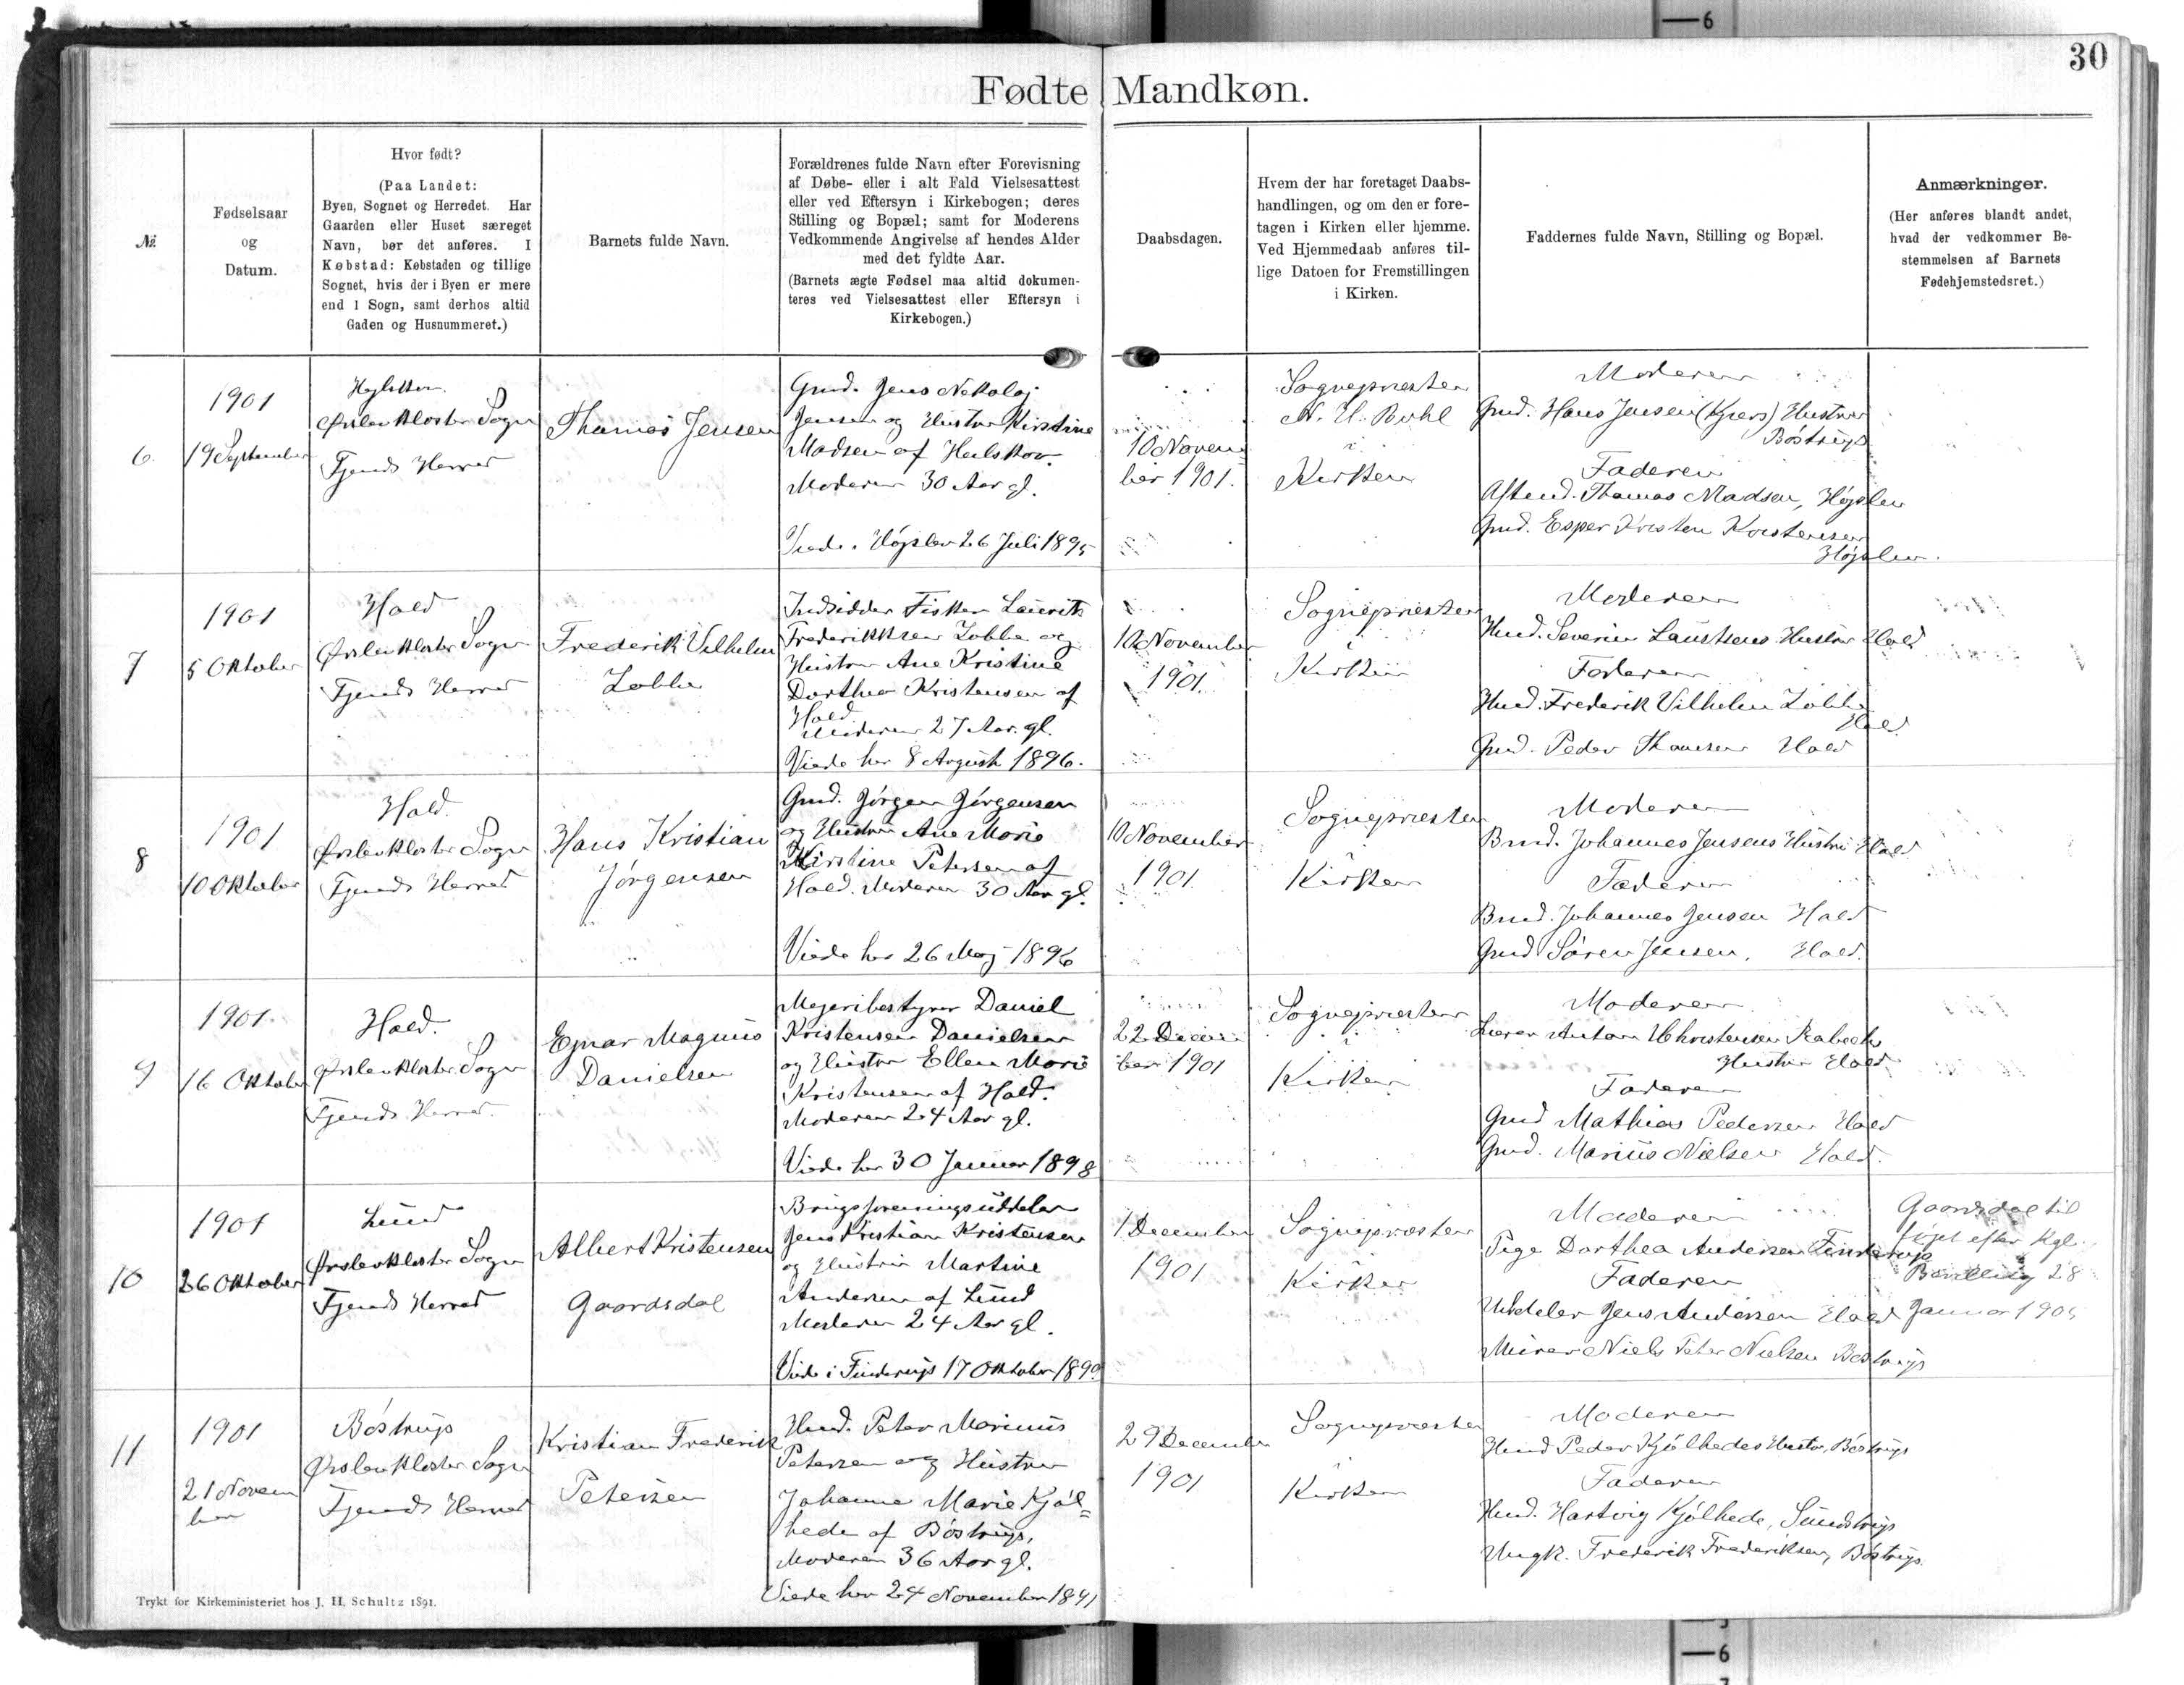 6
30
Fødte Mandkøn.
№
Fødselsaar
og
Datum.
Hvor født?
(Paa Landet:
Byen, Sognet og Herredet. Har
Gaarden eller Huset særeget
Navn, bør det anføres. I
Købstad: Købstaden og tillige
Sognet, hvis der i Byen er mere
end 1 Sogn, samt derhos altid
Gaden og Husnummeret.)
Barnets fulde Navn.
Forældrenes fulde Navn efter Forevisning
af Døbe- eller i alt Fald Vielsesattest
eller ved Eftersyn i Kirkebogen; deres
Stilling og Bopæl; samt for Moderens
Vedkommende Angivelse af hendes Alder
med det fyldte Aar.
(Barnets ægte Fødsel maa altid dokumen-
teres ved Vielsesattest eller Eftersyn i
Kirkebogen.)
Daabsdagen.
Hvem der har foretaget Daabs-
handlingen, og om den er fore-
tagen i Kirken eller hjemme.
Ved Hjemmedaab anføres til-
lige Datoen for Fremstillingen
i Kirken.
Faddernes fulde Navn, Stilling og Bopæl.
Anmærkninger.
(Her anføres blandt andet,
hvad der vedkommer Be-
stemmelsen af Barnets
Fødehjemstedsret.)
6.
1901
19 September
Ørslevkloster Sogn
Fjends Herred
Thomas Jensen
Gmd. Jens Nikolaj
Jensen og Hustru Kirstine
Madsen af
Moderen 30 Aar gl.
Viede i Højslev 26 Juli 1895
10 Novem
ber 1901.
Sognepræsten
N. H. Buhl
i
Kirken
Moderen
Gmd. Hans Jensen (Kjærs) Hustru
Bøstrup
Faderen
Aftmd. Thomas Madsen, Højslev
Gmd. Esper Kristen Kristensen
Højslev.
7
1901
5 Oktober
Hald
Ørslevkloster Sogn
Fjends Herred
Frederik Vilhelm
Lobbe
Indsidder Fisker Laurits
Frederikksen Lobbe og
Hustru Ane Kristine
Dorthea Kristensen af
Hald
Moderen 27 Aar. gl.
Viede her 8 August 1896.
10 November
1901.
Sognepræsten
i
Kirken
Moderen
Hmd. Severin Laustsens Hustru Hald
Faderen
Hmd. Frederik Vilhelm Lobbe
Hald
Gmd. Peder Thomsen Hald
8
1901
10 Oktober
Hald.
Ørslevkloster Sogn
Fjends Herred
Hans Kristian
Jørgensen
Gmd. Jørgen Jørgensen
og Hustru Ane Marie
Kirstine Petersen af
Hald. Moderen 30 Aar gl.
Viede her 26 Maj 1896
10 November
1901.
Sognepræsten
i
Kirken
Moderen
Bmd. Johannes Jensens Hustru Hald
Faderen
Bmd. Johannes Jensen Hald
Gmd Søren Jensen, Hald.
9
1901.
16 Oktober
Hald.
Ørslevkloster Sogn
Fjends Herred.
Ejnar Magnus
Danielsen
Mejeribestyrer Daniel
Kristensen Danielsen
og Hustru Ellen Marie
Kristensen af Hald.
Moderen 24 Aar gl.
Viede her 30 Januar 1898
22 Decem
ber 1901
Sognepræsten
i
Kirken
Moderen
Lærer Anton Christensen
Hustru Hald
Faderen
Gmd Mathias Pedersen Hald
Gmd. Marius Nielsen Hald.
10
1901
26 Oktober
Lund
Ørslevkloster Sogn
Fjends Herred
Albert Kristensen
Gaardsdal
Brugsforeningsuddeler
Jens Kristian Kristensen
og Hustru Martine
Andersen af Lund
Moderen 24 Aar gl.
Viede i Finderup 17 Oktober 1899
1 December
1901
Sognepræsten
i
Kirken
Moderen
Pige Dorthea Andersen Finderup
Faderen
Uddeler Jens Andersen Hald
Murer Niels Peter Nielsen Bøstrup
Gaardsdal til
føjet efter Kgl.
Bevilling 28
Januar 190
11
1901
21 Novem
ber
Bøstrup
Ørslevkloster Sogn
Fjends Herred
Kristian Frederik
Petersen
Hmd. Peter Marinus
Petersen og Hustru
Johanne Marie Kjøl=
hede af Bøstrup,
Moderen 36 Aar gl.
Viede her 24 November 1891
29 December
1901
Sognepræsten
i
Kirken
Moderen
Hmd Peder Kjølhedes Hustru, Bøstrup
Faderen
Hmd. Hartvig Kjølhede, Sundstrup
Ungk. Frederik Frederiksen, Bøstrup.
Trykt for Kirkeministeriet hos J. H. Schultz 1891.
6